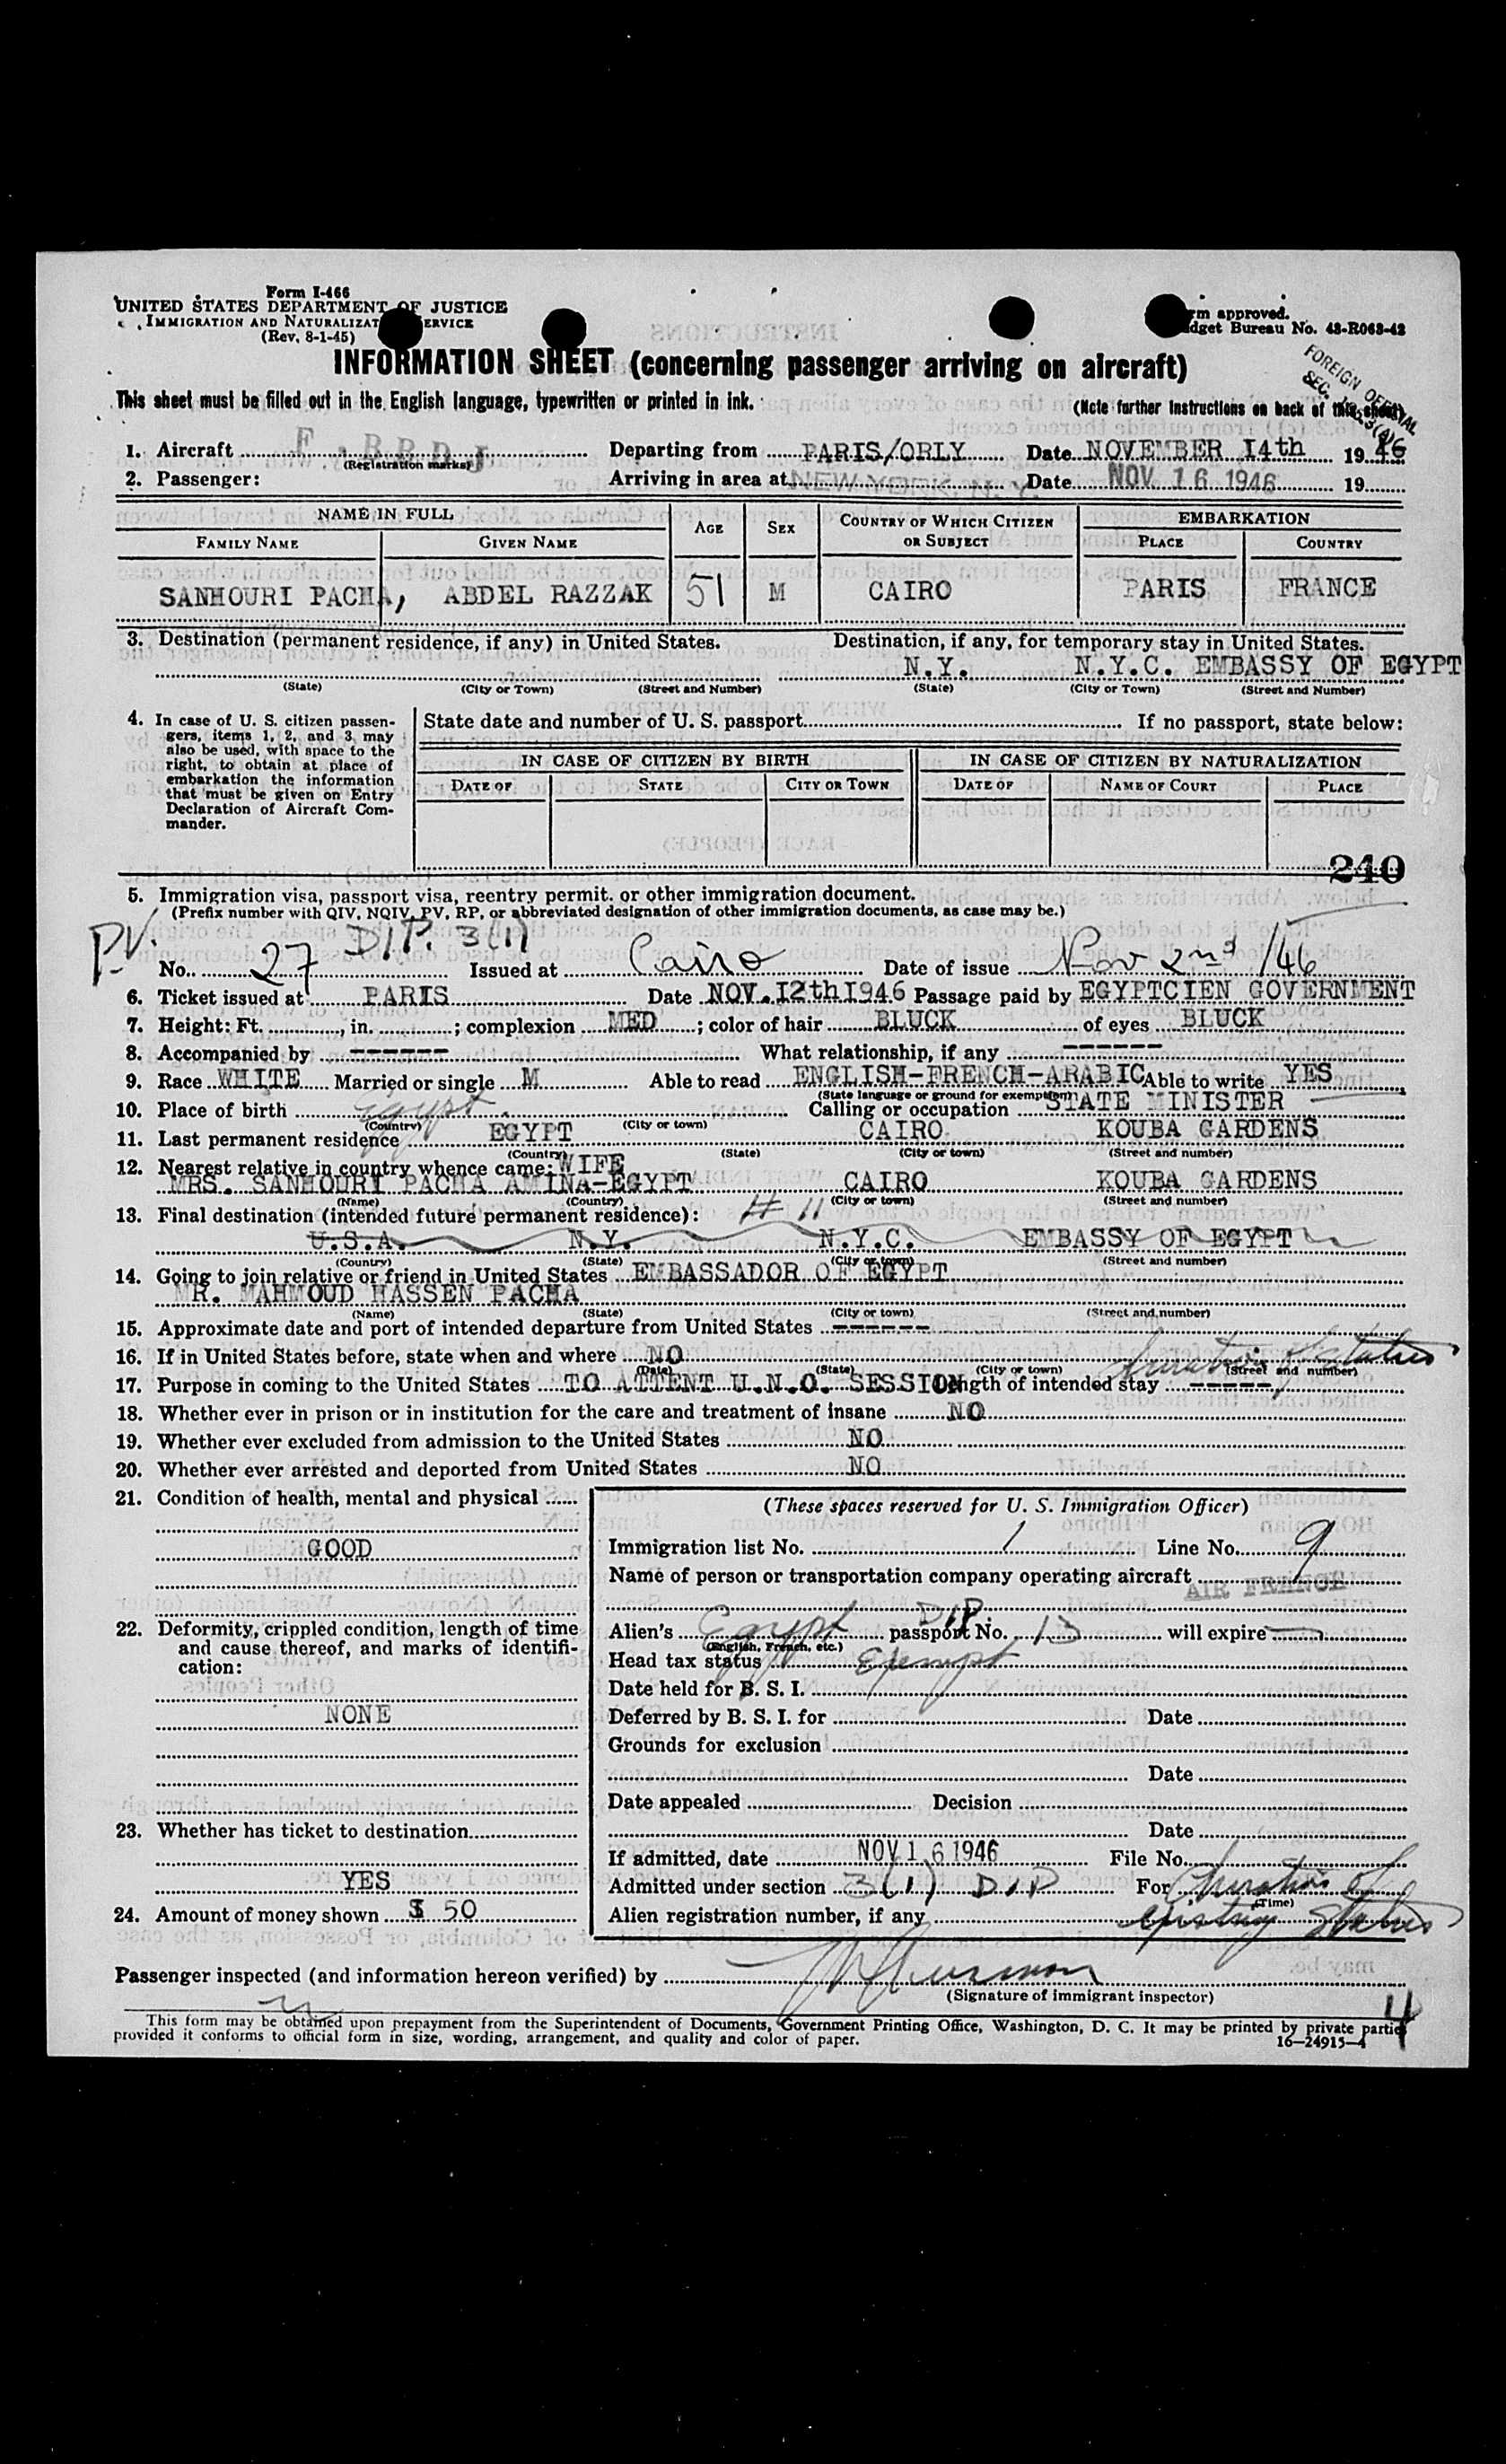 Form I-466
UNITED STATES DEPARTMENT OF JUSTICE
IMMIGRATION AND NATURALIZAT ERVICE
(Rev. 8-1-45)
rm approved.
dget Bureau No. 43-R063-42
FOREIGN OFFICIAL
INFORMATION SHEET (concerning passenger arriving on aircraft)
This sheet must be filled out in the English language, typewritten or printed in ink.
(Note further instructions on back of this sheet)
1. Aircraft F.BBDJ Departing from PARIS/ORLY Date NOVEMBER 14th 1946
(Registration marks)
2. Passenger: Arriving in area at NEW YORK, N.Y. Date NOV 16 1946 19
NAME IN FULL AGE SEX COUNTRY OF WHICH CITIZEN OR SUBJECT EMBARKATION
FAMILY NAME GIVEN NAME PLACE COUNTRY
SANHOURI PACHA, ABDEL RAZZAK 51 M CAIRO PARIS FRANCE
3. Destination (permanent residence, if any) in United States. Destination, if any, for temporary stay in United States.
N.Y. N.Y.C. EMBASSY OF EGYPT
(State) (City or Town) (Street and Number) (State) (City or Town) (Street and Number)
4. In case of U. S. citizen passengers, items 1, 2, and 3 may also be used, with space to the right, to obtain at place of embarkation the information that must be given on Entry Declaration of Aircraft Commander.
State date and number of U. S. passport If no passport, state below:
IN CASE OF CITIZEN BY BIRTH IN CASE OF CITIZEN BY NATURALIZATION
DATE OF STATE CITY OR TOWN DATE OF NAME OF COURT PLACE
240
5. Immigration visa, passport visa, reentry permit. or other immigration document.
(Prefix number with QIV, NQIV, PV, RP, or abbreviated designation of other immigration documents, as case may be.)
PV. DIP. 3(1)
No. 27 Issued at Cairo Date of issue Nov 2nd /46
6. Ticket issued at PARIS Date NOV.12th1946 Passage paid by EGYPTCIEN GOVERNMENT
7. Height: Ft. , in. ; complexion MED ; color of hair BLUCK of eyes BLUCK
8. Accompanied by ------ What relationship, if any ------
9. Race WHITE Married or single M Able to read ENGLISH-FRENCH-ARABIC Able to write YES
(State language or ground for exemption)
10. Place of birth Egypt. Calling or occupation STATE MINISTER
(Country) (City or town)
11. Last permanent residence EGYPT CAIRO KOUBA GARDENS
(Country) (State) (City or town) (Street and number)
12. Nearest relative in country whence came: WIFE
MRS. SANHOURI PACHA AMINA-EGYPT CAIRO KOUBA GARDENS
(Name) (Country) (City or town) (Street and number)
13. Final destination (intended future permanent residence): # 11
U.S.A. N.Y. N.Y.C. EMBASSY OF EGYPT
(Country) (State) (City or town) (Street and number)
14. Going to join relative or friend in United States EMBASSADOR OF EGYPT
MR. MAHMOUD HASSEN PACHA
(Name) (State) (City or town) (Street and number)
15. Approximate date and port of intended departure from United States ------
16. If in United States before, state when and where NO
(Date) (State) (City or town) (Street and number)
17. Purpose in coming to the United States TO ATTENT U.N.O. SESSION Length of intended stay Duration of status
18. Whether ever in prison or in institution for the care and treatment of insane NO
19. Whether ever excluded from admission to the United States NO
20. Whether ever arrested and deported from United States NO
21. Condition of health, mental and physical
GOOD
22. Deformity, crippled condition, length of time and cause thereof, and marks of identification:
NONE
23. Whether has ticket to destination
YES
24. Amount of money shown $ 50
(These spaces reserved for U. S. Immigration Officer)
Immigration list No. 1 Line No. 9
Name of person or transportation company operating aircraft
AIR FRANCE
Alien's Egypt DIP passport No. 13 will expire
(English, French, etc.)
Head tax status Exempt
Date held for B. S. I.
Deferred by B. S. I. for Date
Grounds for exclusion
Date
Date appealed Decision
Date
If admitted, date NOV 16 1946 File No.
Admitted under section 3(1) DIP For Duration of
(Time)
Alien registration number, if any status
Passenger inspected (and information hereon verified) by
(Signature of immigrant inspector)
4
This form may be obtained upon prepayment from the Superintendent of Documents, Government Printing Office, Washington, D. C. It may be printed by private parties
provided it conforms to official form in size, wording, arrangement, and quality and color of paper.
16—24915-4